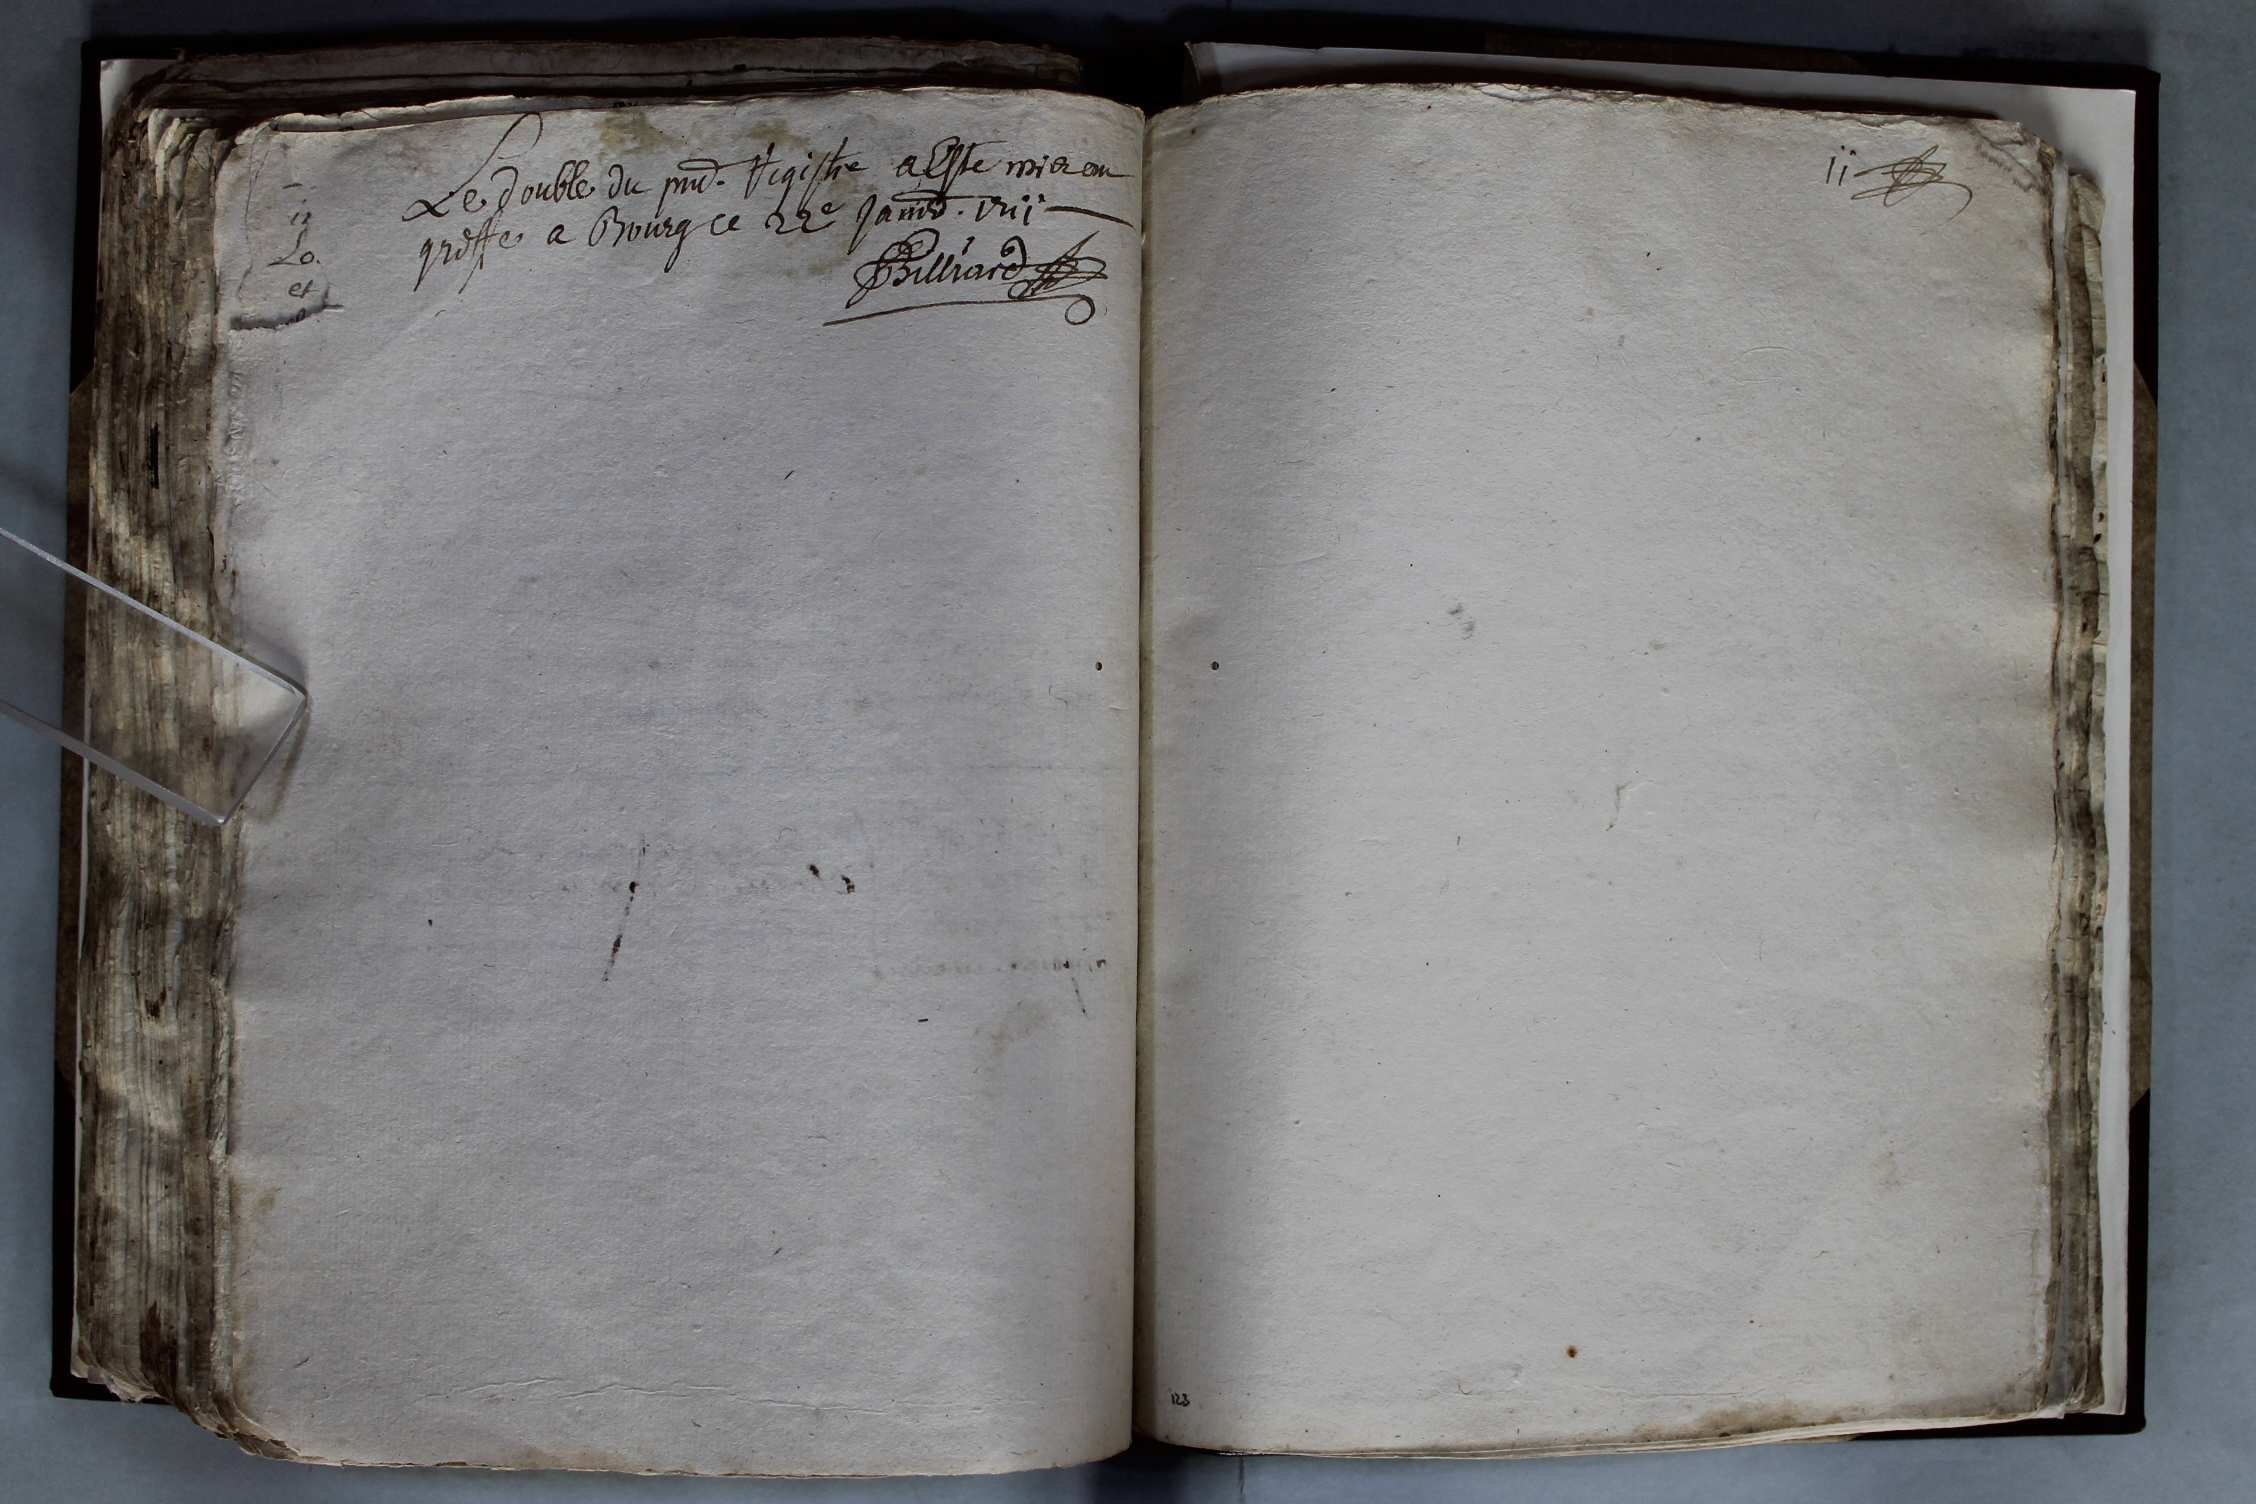 Le double du pnt. Registre a Este mis au
greffe a Bourg ce 22e Janvd. 1711
Billiard
Lo.
et
ii
123